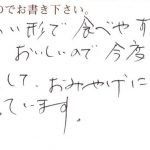 のでお書き下さい。
いい形で食べやす
おいしいので今度
して、おみやげに
ています。